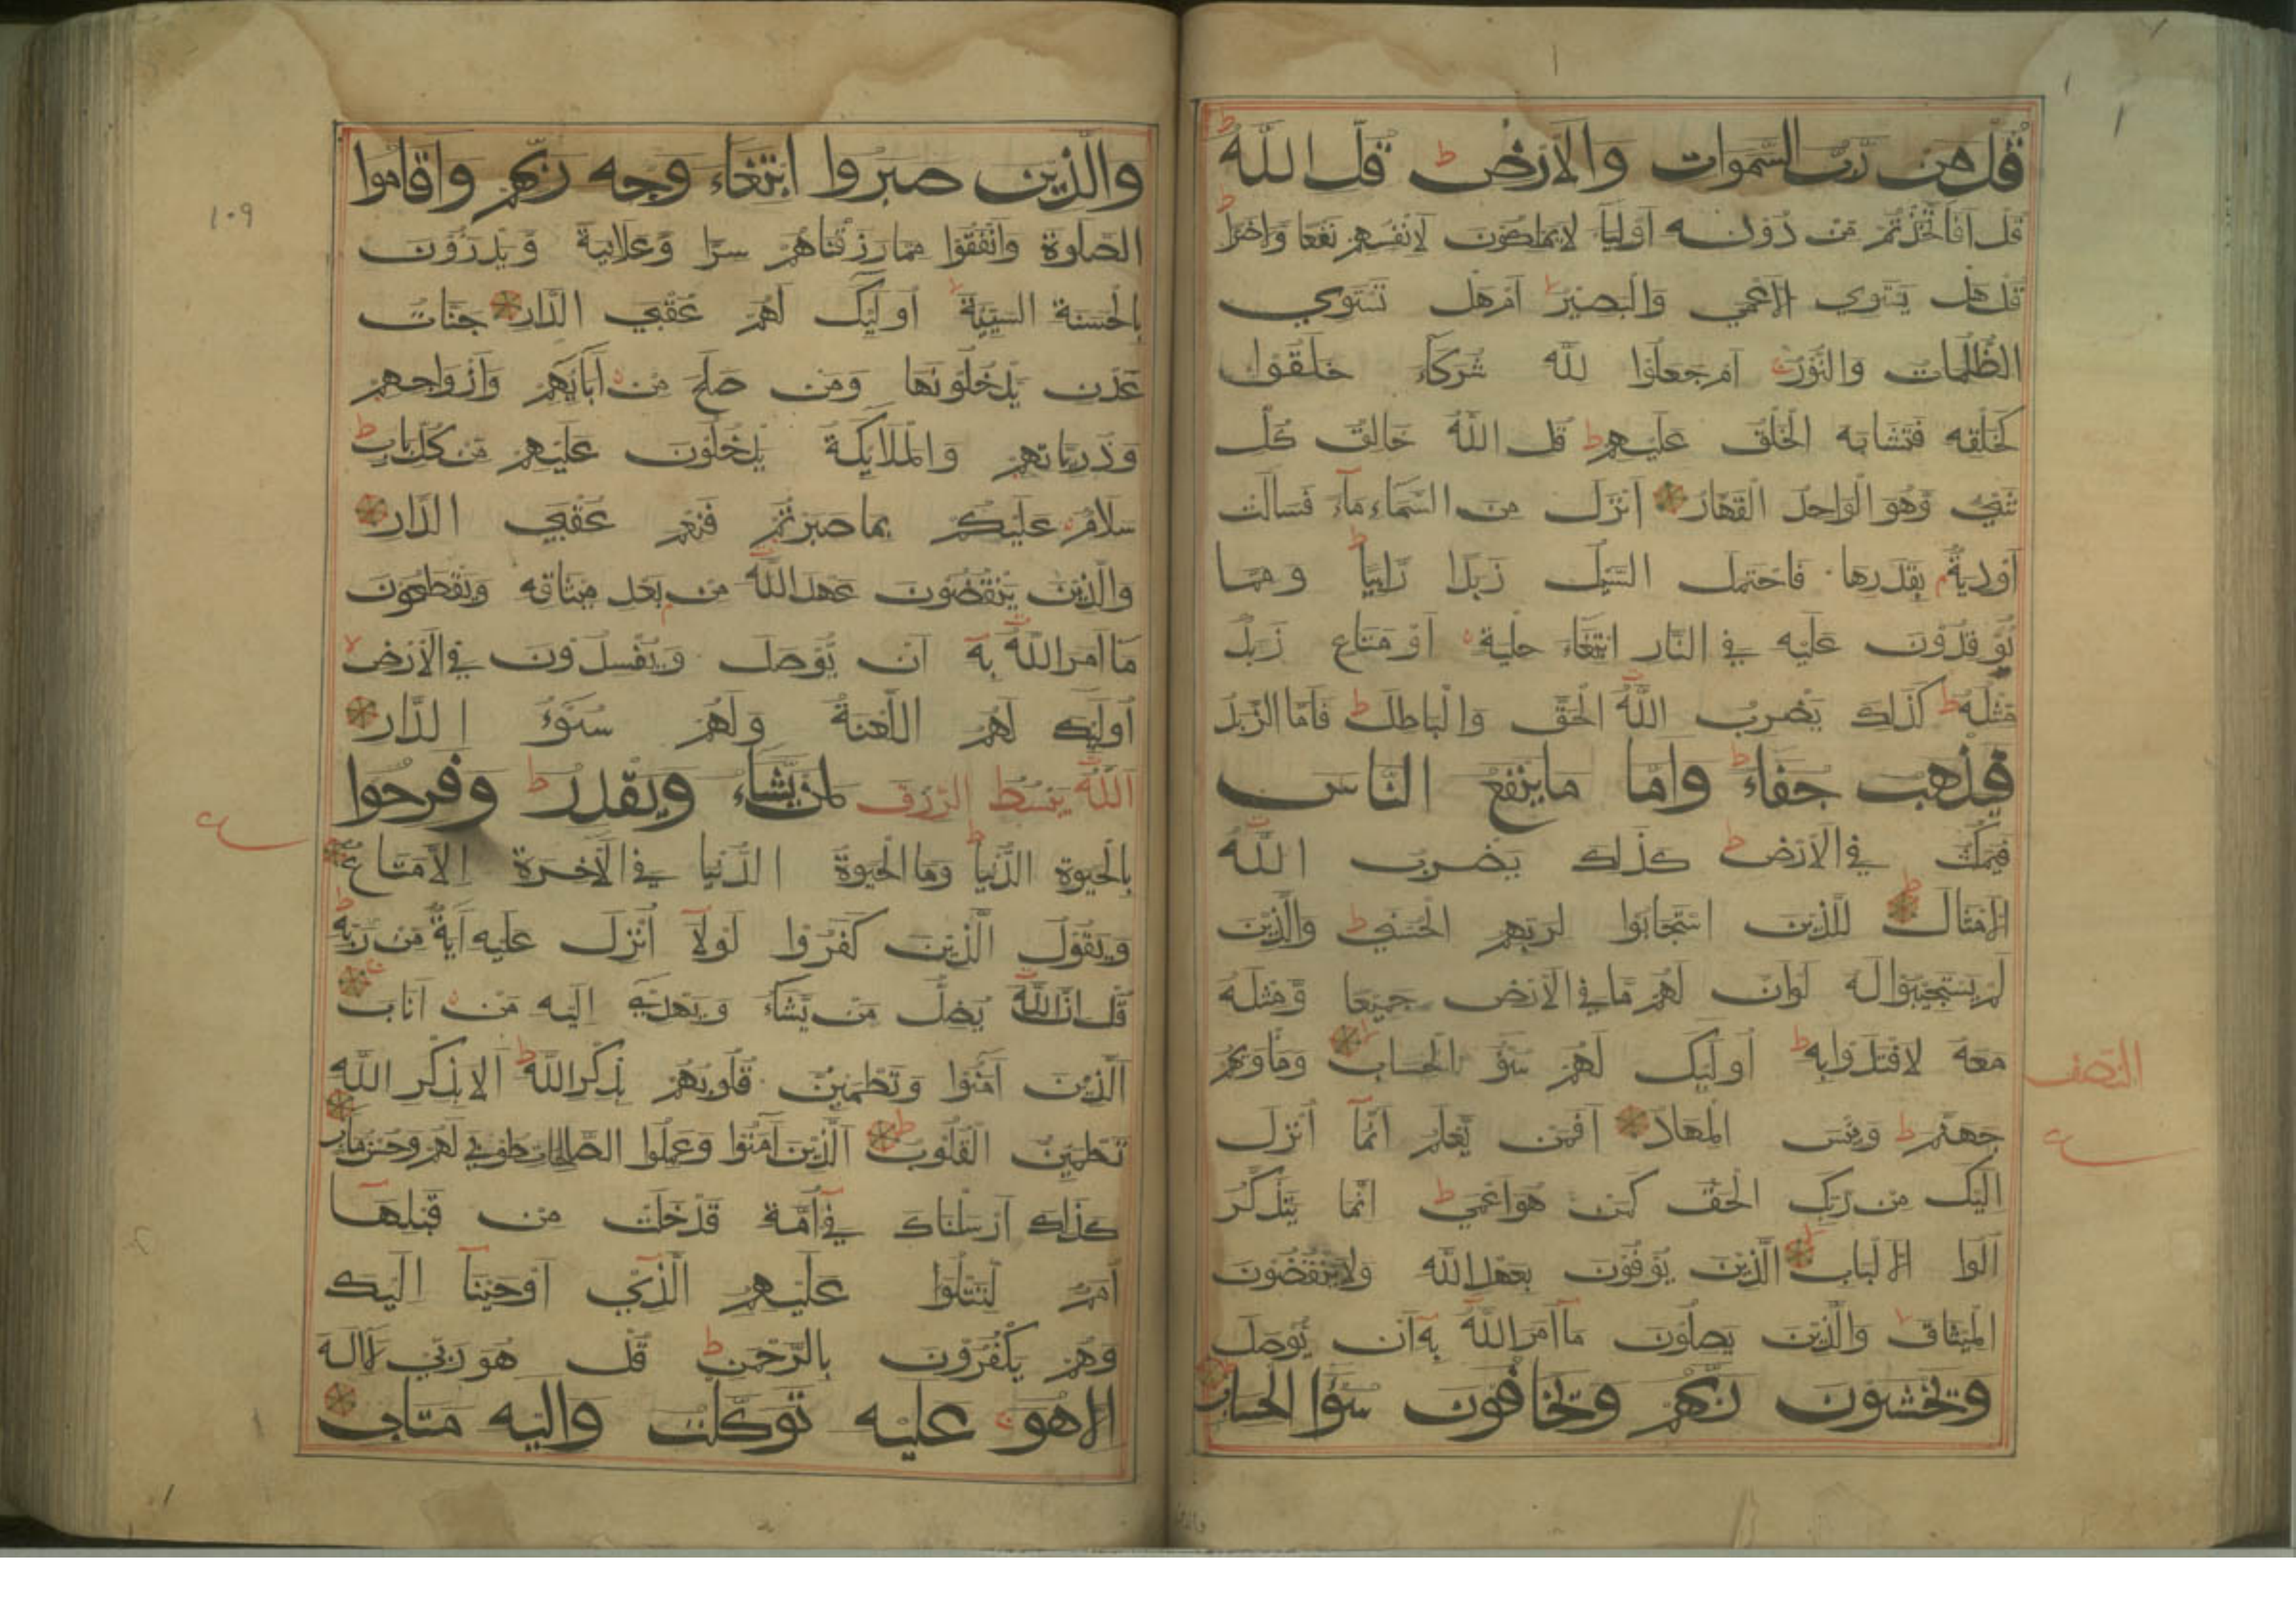 قُل مَن رَّبُّ السَّمٰوات وَالاَرْض ط قُل اللّٰهُ ط
قُل اَفَاتَّخَذْتُمْ مِّن دُونِه اَولِيَآ لا يَملِكُون لِاَنْفُسِهِمْ نَفعًا وَّلاضَرًّا ط
قُل هَل يَستَوِي الاَعْمٰي وَالبَصِيْرُ لا اَم هَل تَسْتَوِي
الظُّلُمَات وَالنُّوْرُ ج اَم جَعَلُوْا لِلّٰه شُرَكَآءَ خَلَقُوْا
كَخَلْقِه فَتَشَابَه الخَلْقُ عَلَيْهِم ط قُل اللّٰهُ خَالِقُ كُلِّ
شَيْءٍ وَّهُوَ الْوَاحِدُ القَهَّارُ اَنْزَلَ مِنَ السَّمَاءِ مَآءً فَسَالَتْ
اَوْدِيَةٌ بِقَدَرِهَا فَاحْتَمَلَ السَّيْلُ زَبَدًا رَّابِيًا ط وَمِمَّا
يُوْقِدُوْنَ عَلَيْه فِي النَّار ابْتِغَاءَ حِلْيَة اَوْ مَتَاع زَبَدٌ
مِّثْلُهُ ط كَذٰلِكَ يَضْرِبُ اللّٰهُ الْحَقَّ وَالْبَاطِلَ ط فَاَمَّا الزَّبَدُ
فَيَذْهَبُ جُفَاءً ط وَاَمَّا مَايَنْفَعُ النَّاس
فَيَمْكُثُ فِي الاَرْض ط كَذٰلِكَ يَضْرِبُ اللّٰهُ
الاَمْثَالَ ط لِلَّذِيْنَ اسْتَجَابُوْا لِرَبِّهِم الْحُسْنٰي ط وَالَّذِيْنَ
لَمْ يَسْتَجِيْبُوْا لَهُ لَوْ اَنَّ لَهُمْ مَّا فِي الاَرْض جَمِيْعًا وَّمِثْلَهُ
مَعَهُ لَافْتَدَوْا بِه ط اُولٰئِكَ لَهُمْ سُوْءُ الْحِسَابِ وَمَاْوٰيهُمْ
جَهَنَّمُ ط وَبِئْسَ الْمِهَادُ اَفَمَن يَّعْلَمُ اَنَّمَآ اُنْزِلَ
اِلَيْكَ مِن رَّبِّكَ الْحَقُّ كَمَن هُوَ اَعْمٰي ط اِنَّمَا يَتَذَكَّرُ
اُولُوا الاَلْبَابِ الَّذِيْنَ يُوْفُوْنَ بِعَهْدِ اللّٰه وَلايَنْقُضُوْنَ
الْمِيْثَاقَ لا وَالَّذِيْنَ يَصِلُوْنَ مَآ اَمَرَ اللّٰهُ بِه اَن يُّوْصَلَ
وَيَخْشَوْنَ رَبَّهُمْ وَيَخَافُوْنَ سُوْءَ الْحِسَابِ
النصف
وَالَّذِيْنَ صَبَرُوا ابْتِغَاءَ وَجْه رَبِّهِمْ وَاَقَامُوا
الصَّلٰوةَ وَاَنْفَقُوْا مِمَّا رَزَقْنَاهُمْ سِرًّا وَّعَلَانِيَةً وَّيَدْرَؤُوْنَ
بِالْحَسَنَة السَّيِّئَةَ اُولٰئِكَ لَهُمْ عُقْبَي الدَّارِ جَنَّاتُ
عَدْن يَّدْخُلُوْنَهَا وَمَن صَلَحَ مِن اٰبَائِهِمْ وَاَزْوَاجِهِمْ
وَذُرِّيَّاتِهِمْ وَالْمَلَائِكَةُ يَدْخُلُوْنَ عَلَيْهِمْ مِّن كُلِّ بَابٍ ط
سَلَامٌ عَلَيْكُمْ بِمَا صَبَرْتُمْ فَنِعْمَ عُقْبَي الدَّارِ
وَالَّذِيْنَ يَنْقُضُوْنَ عَهْدَ اللّٰه مِن بَعْدِ مِيْثَاقِه وَيَقْطَعُوْنَ
مَا اَمَرَ اللّٰهُ بِه اَن يُّوْصَلَ وَيُفْسِدُوْنَ فِي الاَرْض لا
اُولٰئِكَ لَهُمُ اللَّعْنَةُ وَلَهُمْ سُوْءُ الدَّارِ
اللّٰهُ يَبْسُطُ الرِّزْقَ لِمَن يَّشَاءُ وَيَقْدِرُ ط وَفَرِحُوا
بِالْحَيٰوة الدُّنْيَا ط وَمَا الْحَيٰوةُ الدُّنْيَا فِي الْاٰخِرَة اِلَّا مَتَاعٌ
وَيَقُوْلُ الَّذِيْنَ كَفَرُوْا لَوْلَآ اُنْزِلَ عَلَيْه اٰيَةٌ مِّن رَّبِّه ط
قُل اِنَّ اللّٰهَ يُضِلُّ مَن يَّشَآءُ وَيَهْدِيْ اِلَيْه مَن اَنَابَ
الَّذِيْنَ اٰمَنُوْا وَتَطْمَئِنُّ قُلُوْبُهُمْ بِذِكْرِ اللّٰه ط اَلَا بِذِكْرِ اللّٰه
تَطْمَئِنُّ الْقُلُوْبُ ط الَّذِيْنَ اٰمَنُوْا وَعَمِلُوا الصَّالِحَات طُوْبٰي لَهُمْ وَحُسْنُ مَاٰبٍ
كَذٰلِكَ اَرْسَلْنَاكَ فِيْ اُمَّة قَدْ خَلَتْ مِن قَبْلِهَا
اُمَمٌ لِّتَتْلُوَا عَلَيْهِمُ الَّذِيْ اَوْحَيْنَا اِلَيْكَ
وَهُمْ يَكْفُرُوْنَ بِالرَّحْمٰن ط قُل هُوَ رَبِّي لَا اِلٰهَ
اِلَّا هُوَ ج عَلَيْه تَوَكَّلْتُ وَاِلَيْه مَتَابِ
١٠٩